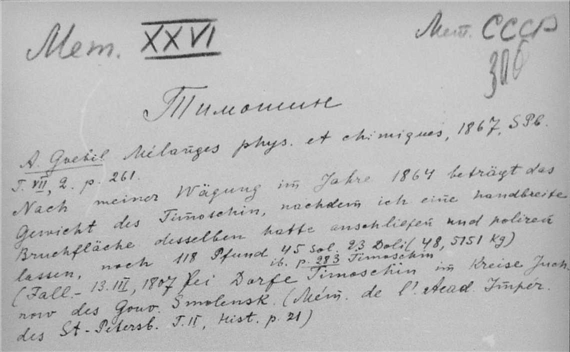 Мет. XXVI
Мет. СССР
306
Тимошин
A. Goebel Mélanges phys. et chimiques, 1867, SPb.
T. VII, 2. p. 261.
Nach meiner Wägung im Jahre 1864 beträgt das
Gewicht des Timoschin, nachdem ich eine handbreite
Bruchfläche desselben hatte anschleifen und poliren
lassen, noch 118 Pfund 45 Sol. 23 Doli (48,5151 Kg)
ib. p. 283 Timoschin
(Fall - 13.III, 1807 bei Dorfe Timoschin im Kreise Juch-
now des Gouv. Smolensk. (Mém. de l'Acad Imper.
des St-Petersb. T. II, Hist. p. 21)